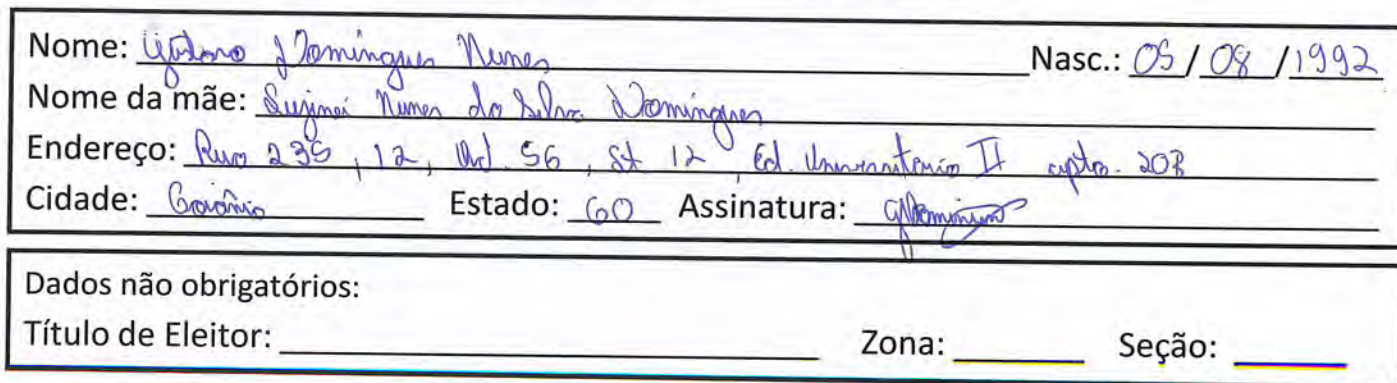 Nome: Domingues Nunes Nasc.: 05/08/1992
Nome da mãe: Nunes da Silva Domingues
Endereço: Rua 235, 12, Qd 56, St 12, Ed. Universitário II apto.
Cidade: Goiânia Estado: GO Assinatura:
Dados não obrigatórios:
Título de Eleitor: Zona: Seção: